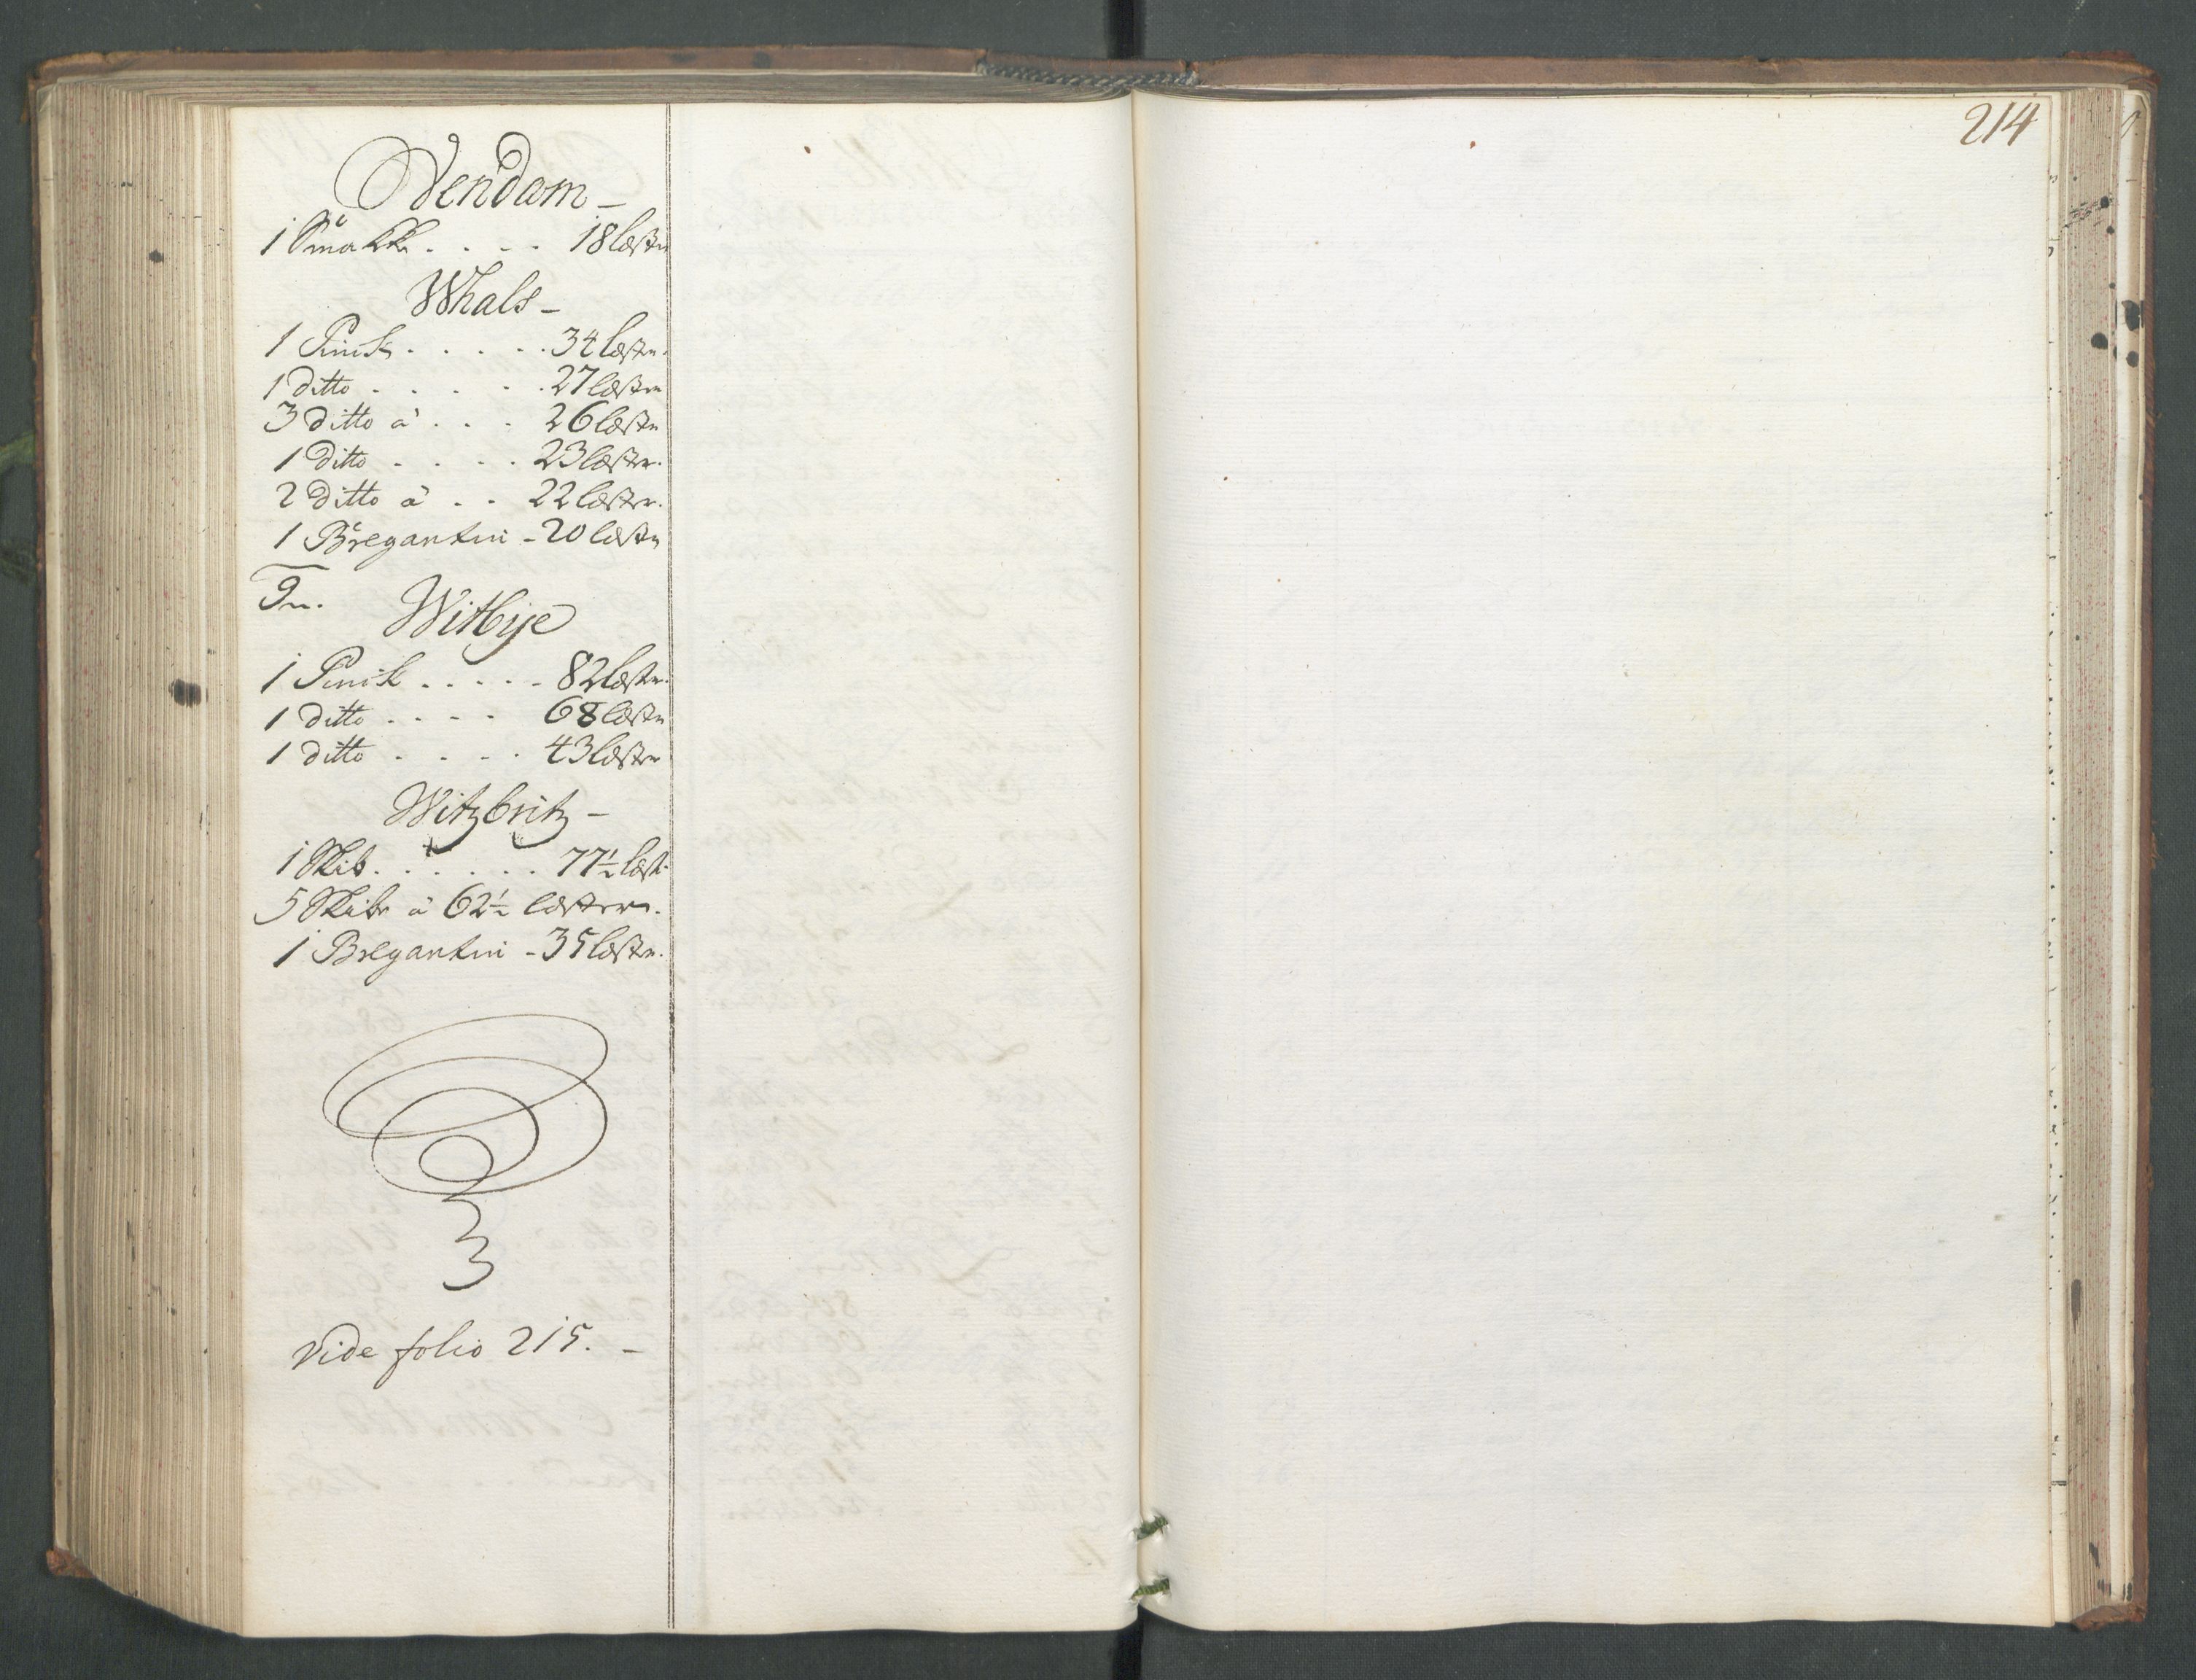 Vendam –
1 Smakke . . . . 18 læster
Whals –
1 Pinck . . . . . 34 læster.
1 ditto . . . . . 27 læster
3 ditto á . . . 26 læster
1 ditto . . . . 23 læster.
2 ditto á . . 22 læster.
1 Bregantin – 20 læster
9
Witbÿe
1 Pinck . . . . . 82 læster.
1 ditto . . . . 68 læster
1 ditto . . . . 43 læster
Witzbritz –
1 Skib . . . . . . 77½ læst.
5 Skibe á 62½ læster.
1 Bregantin – 35 læster.
Vide folio 215. –
214